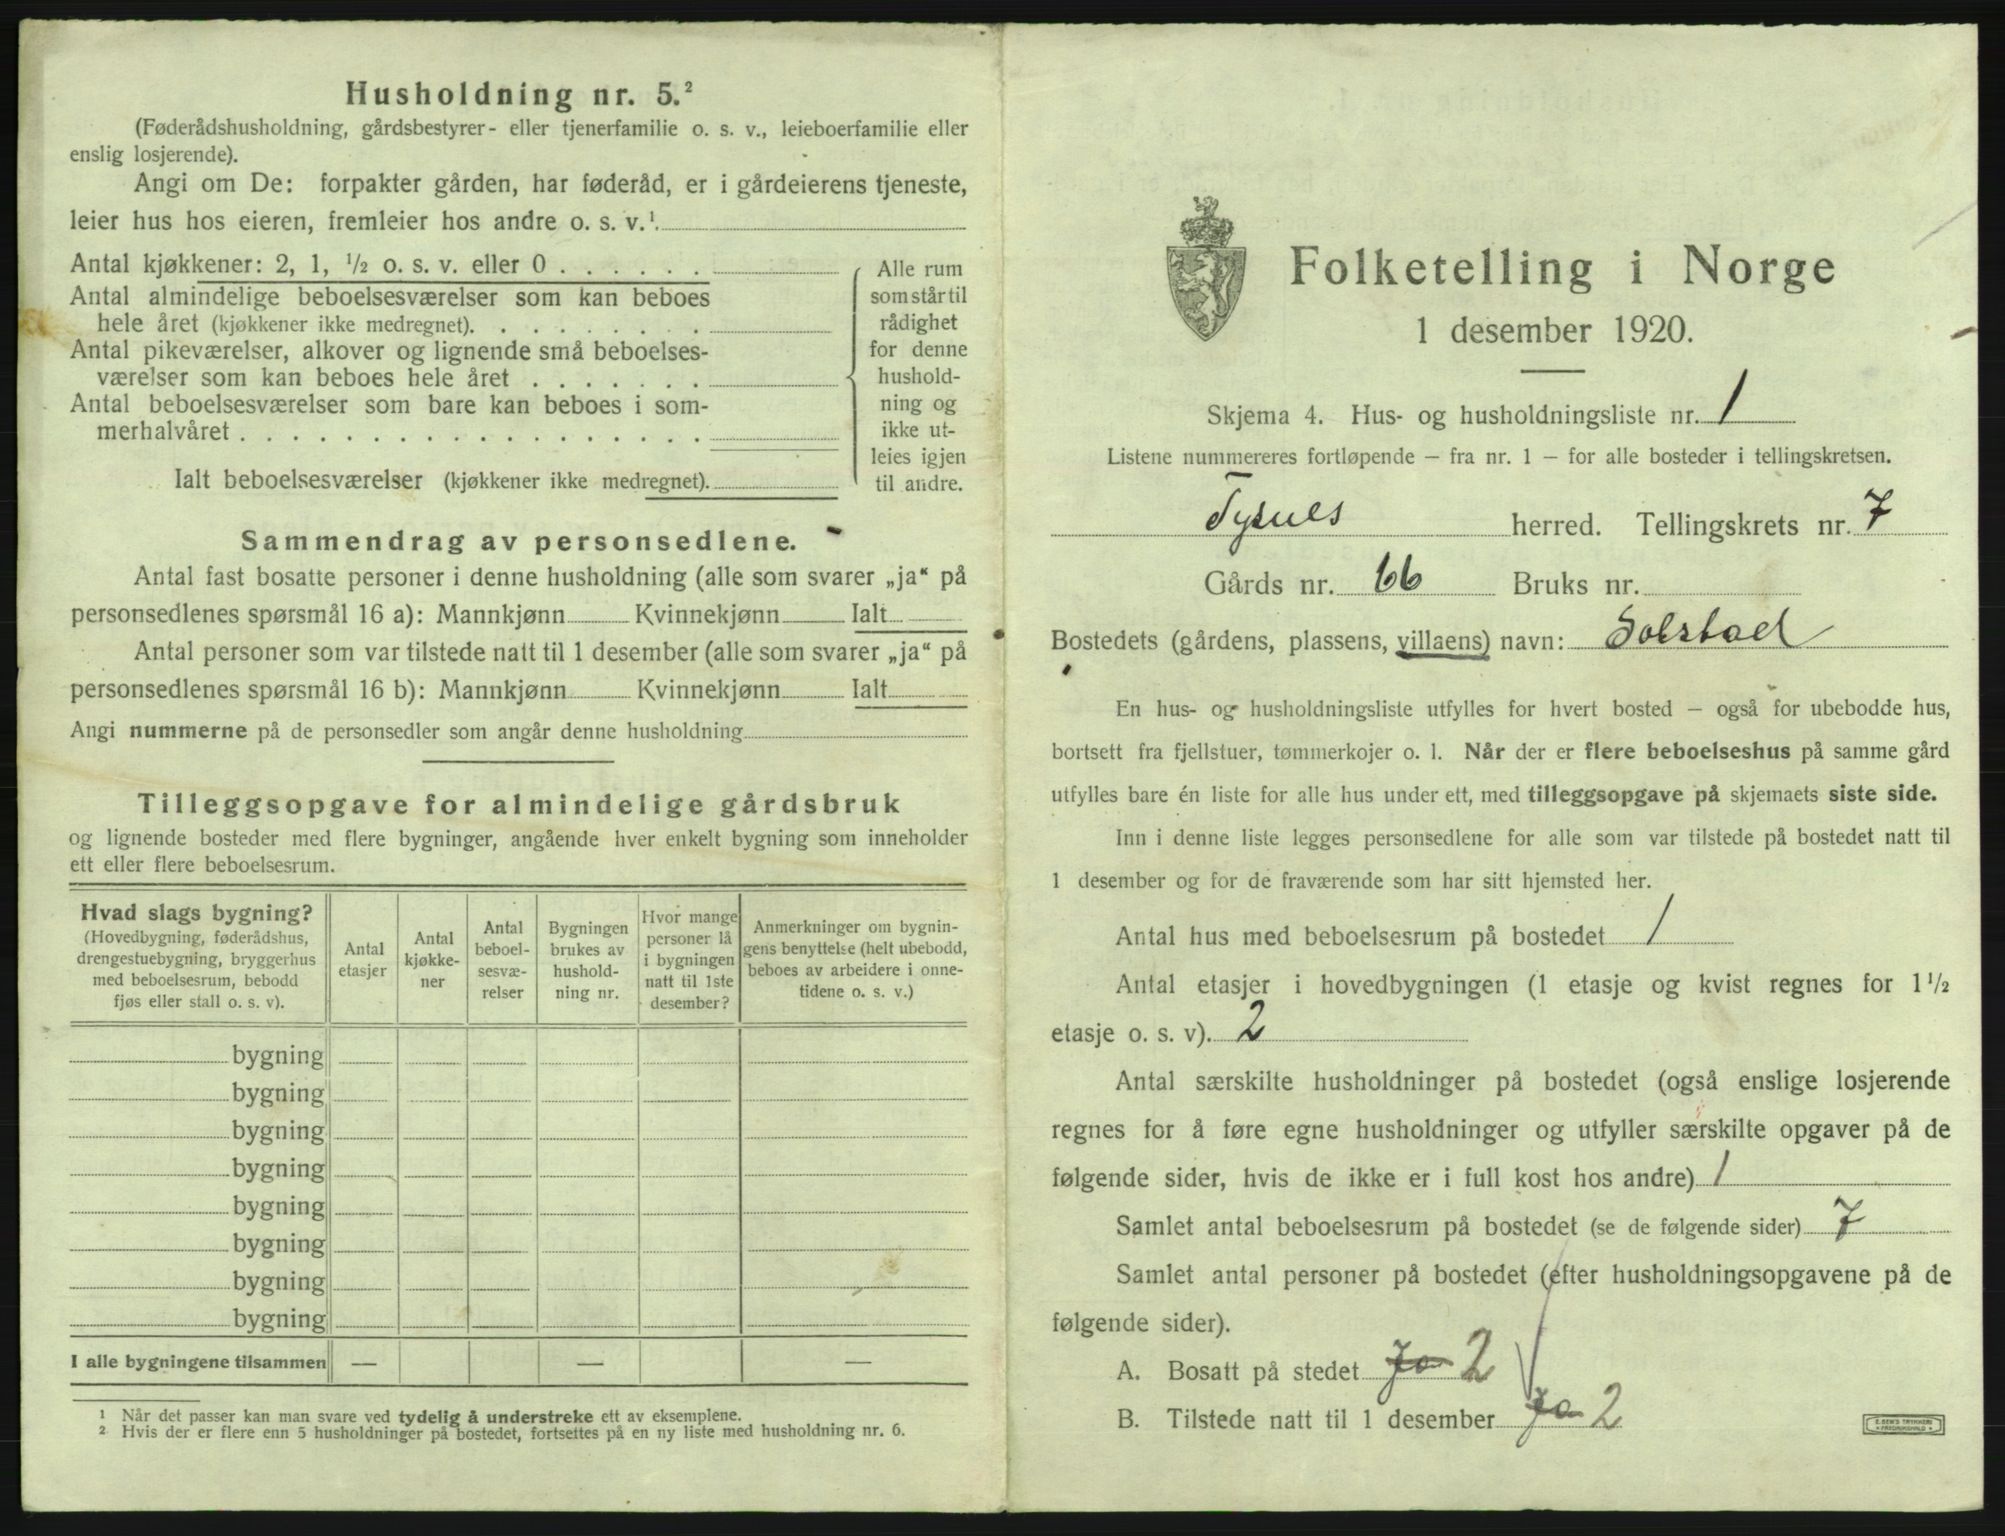 Husholdning nr. 5.²
(Føderådshusholdning, gårdsbestyrer- eller tjenerfamilie o. s. v., leieboerfamilie eller
enslig losjerende).
Angi om De: forpakter gården, har føderåd, er i gårdeierens tjeneste,
leier hus hos eieren, fremleier hos andre o. s. v.¹
Antal kjøkkener: 2, 1, ½ o. s. v. eller 0 . . . . . .
Antal almindelige beboelsesværelser som kan beboes
hele året (kjøkkener ikke medregnet). . . . . . . . .
Antal pikeværelser, alkover og lignende små beboelses-
værelser som kan beboes hele året . . . . . . .
Antal beboelsesværelser som bare kan beboes i som-
merhalvåret . . . . . . . . . . . . . . . . . .
Ialt beboelsesværelser (kjøkkener ikke medregnet).
Alle rum
som står til
rådighet
for denne
hushold-
ning og
ikke ut-
leies igjen
til andre.
Sammendrag av personsedlene.
Antal fast bosatte personer i denne husholdning (alle som svarer „ja“ på
personsedlenes spørsmål 16 a): Mannkjønn Kvinnekjønn Ialt
Antal personer som var tilstede natt til 1 desember (alle som svarer „ja“ på
personsedlenes spørsmål 16 b): Mannkjønn Kvinnekjønn Ialt
Angi nummerne på de personsedler som angår denne husholdning
Tilleggsopgave for almindelige gårdsbruk
og lignende bosteder med flere bygninger, angående hver enkelt bygning som inneholder
ett eller flere beboelsesrum.
Hvad slags bygning?
(Hovedbygning, føderådshus,
drengestuebygning, bryggerhus
med beboelsesrum, bebodd
fjøs eller stall o. s. v).
Antal
etasjer
Antal
kjøkke-
ner
Antal
beboel-
sesvæ-
relser
Bygningen
brukes av
hushold-
ning nr.
Hvor mange
personer lå
i bygningen
natt til 1ste
desember?
Anmerkninger om bygnin-
gens benyttelse (helt ubebodd,
beboes av arbeidere i onne-
tidene o. s. v.)
bygning
bygning
bygning
bygning
bygning
bygning
bygning
bygning
I alle bygningene tilsammen — — —
¹ Når det passer kan man svare ved tydelig å understreke ett av eksemplene.
² Hvis der er flere enn 5 husholdninger på bostedet, fortsettes på en ny liste med husholdning nr. 6.
Folketelling i Norge
1 desember 1920.
Skjema 4. Hus- og husholdningsliste nr. 1
Listene nummereres fortløpende – fra nr. 1 – for alle bosteder i tellingskretsen.
Tysnes herred. Tellingskrets nr. 7
Gårds nr. 66 Bruks nr.
Bostedets (gårdens, plassens, villaens) navn: Solstad
En hus- og husholdningsliste utfylles for hvert bosted – også for ubebodde hus,
bortsett fra fjellstuer, tømmerkojer o. l. Når der er flere beboelseshus på samme gård
utfylles bare én liste for alle hus under ett, med tilleggsopgave på skjemaets siste side.
Inn i denne liste legges personsedlene for alle som var tilstede på bostedet natt til
1 desember og for de fraværende som har sitt hjemsted her.
Antal hus med beboelsesrum på bostedet 1
Antal etasjer i hovedbygningen (1 etasje og kvist regnes for 1½
etasje o. s. v). 2
Antal særskilte husholdninger på bostedet (også enslige losjerende
regnes for å føre egne husholdninger og utfyller særskilte opgaver på de
følgende sider, hvis de ikke er i full kost hos andre) 1
Samlet antal beboelsesrum på bostedet (se de følgende sider) 7
Samlet antal personer på bostedet (efter husholdningsopgavene på de
følgende sider).
A. Bosatt på stedet Ja 2
B. Tilstede natt til 1 desember Ja 2